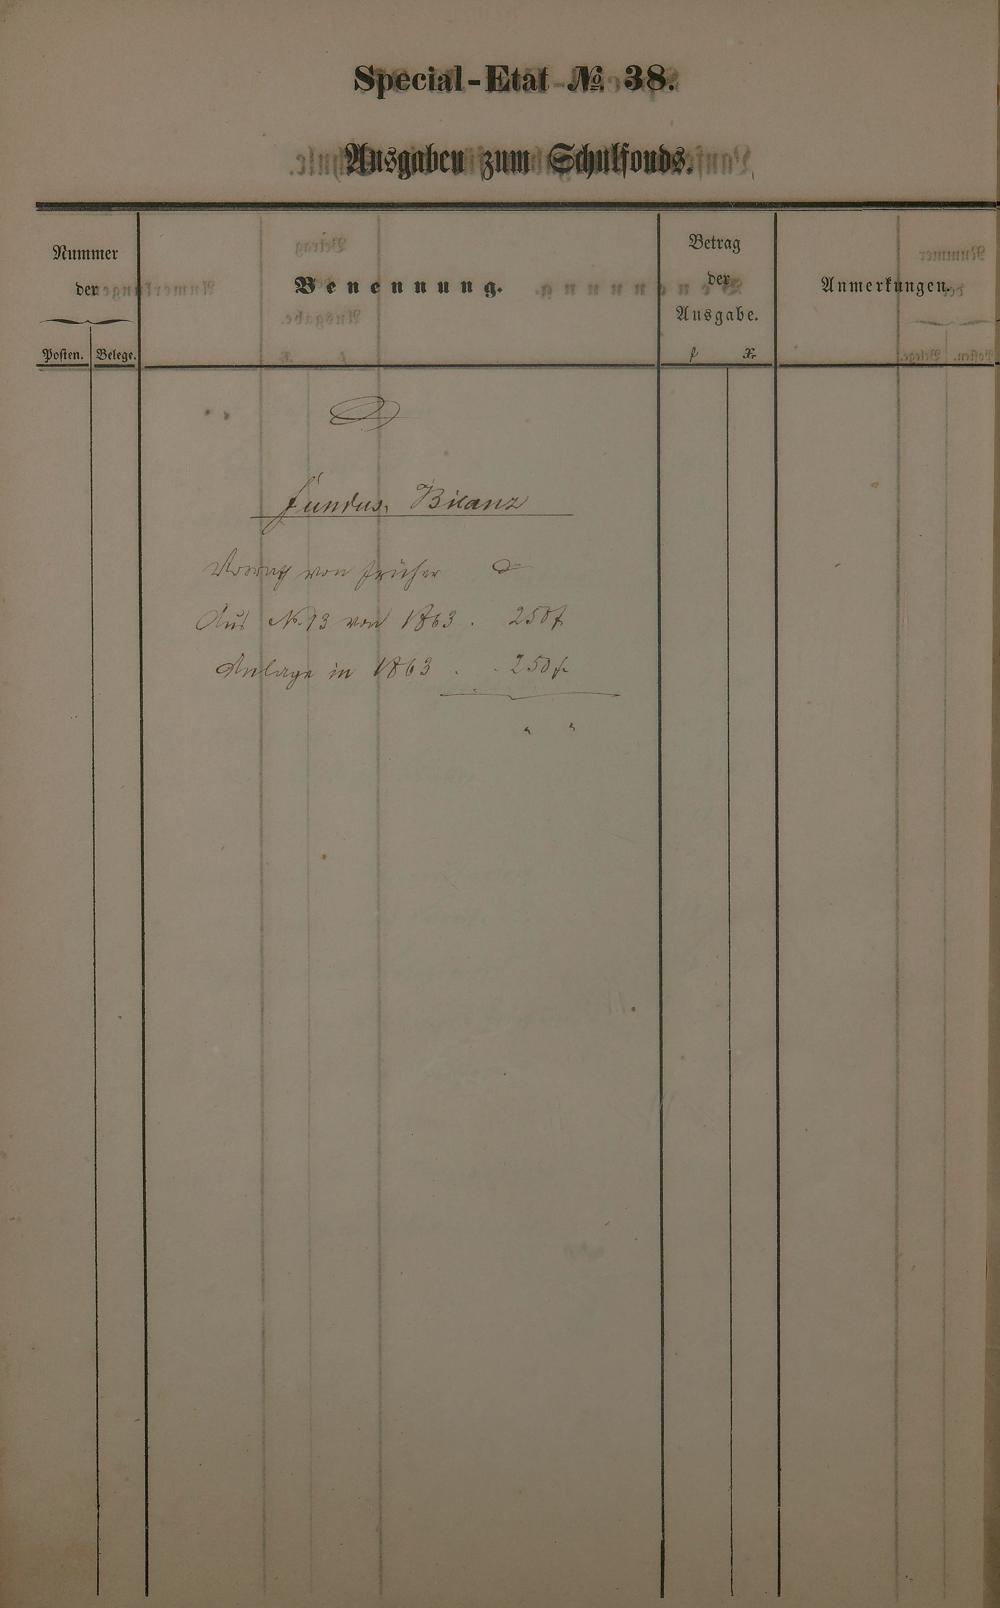 Special-Etat № 38.
Ausgaben zum Schulfonds.
Nummer
der
Posten.
Belege.
Benennung.
Betrag
der
Ausgabe.
f
Xr
Anmerkungen.
Fundus. Bilanz
von früher
Aus No. 13 von 1863. 250 f
Anlage in 1863 . . 250 f
" "